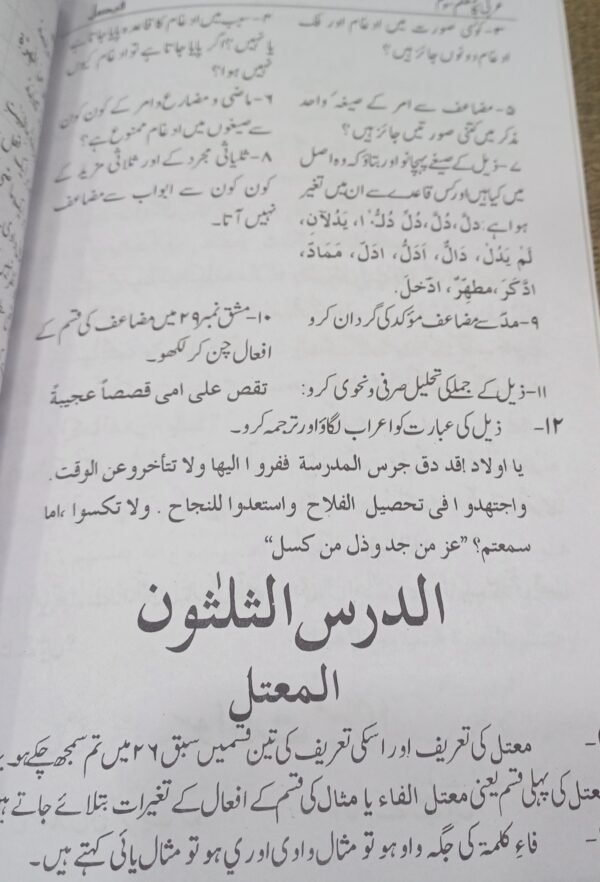 عربی کا معلم سوم
المعتل
۳- کوئی صورت میں ادغام اور فک
ادغام دونوں جائز ہیں؟
۴- سبب میں ادغام کا قاعدہ پایا جاتا ہے
یا نہیں؟ اگر پایا جاتا ہے تو ادغام کیوں
نہیں ہوا؟
۵- مضاعف سے امر کے صیغہ واحد
مذکر میں کتنی صورتیں جائز ہیں؟
۶- ماضی و مضارع و امر کے کون کون
سے صیغوں میں ادغام ممنوع ہے؟
۷- ذیل کے صیغے پہچانو اور بتاؤ کہ وہ اصل
میں کیا ہیں اور کس قاعدے سے ان میں تغیر
ہوا ہے: دلَّ، دُلَّ، دُلِّ دُلُّ، ا، یَدُلَّانِ،
لَمْ یَدُلْ، دَالٌّ، اَدَلُّ، ادَلّ، مَمَادّ،
ادَّکَرَ، مطهِّرٌ، ادّخلَ۔
۸- ثلیاثی مجرد کے اور ثلاثی مزید کے
کون کون سے ابواب سے مضاعف
نہیں آتا۔
۹- مدّ سے مضاعف مؤکد کی گردان کرو
۱۰- مشق نمبر ۲۹ میں مضاعف کی قسم کے
افعال چن کر لکھو۔
۱۱- ذیل کے جملے کی تحلیل صرفی و نحوی کرو: تقص علی امی قصصاً عجیبةً
۱۲- ذیل کی عبارت کو اعراب لگاؤ اور ترجمہ کرو۔
یا اولاد! قد دق جرس المدرسة ففروا الیها ولا تتأخروعن الوقت.
واجتهدوا فی تحصیل الفلاح واستعدوا للنجاح . ولا تکسوا ،اما
سمعتم؟ ”عز من جد و ذل من کسل“
الدرس الثلٰثون
المعتل
- معتل کی تعریف اور اسکی تعریف کی تین قسمیں سبق ۲۶ میں تم سمجھ چکے ہو۔
معتل کی پہلی قسم یعنی معتل الفاء یا مثال کی قسم کے افعال کے تغیرات بتلائے جاتے ہیں
- فاءِ کلمۃ کی جگہ واو ہو تو مثال واوی اور ي ہو تو مثال یائی کہتے ہیں۔